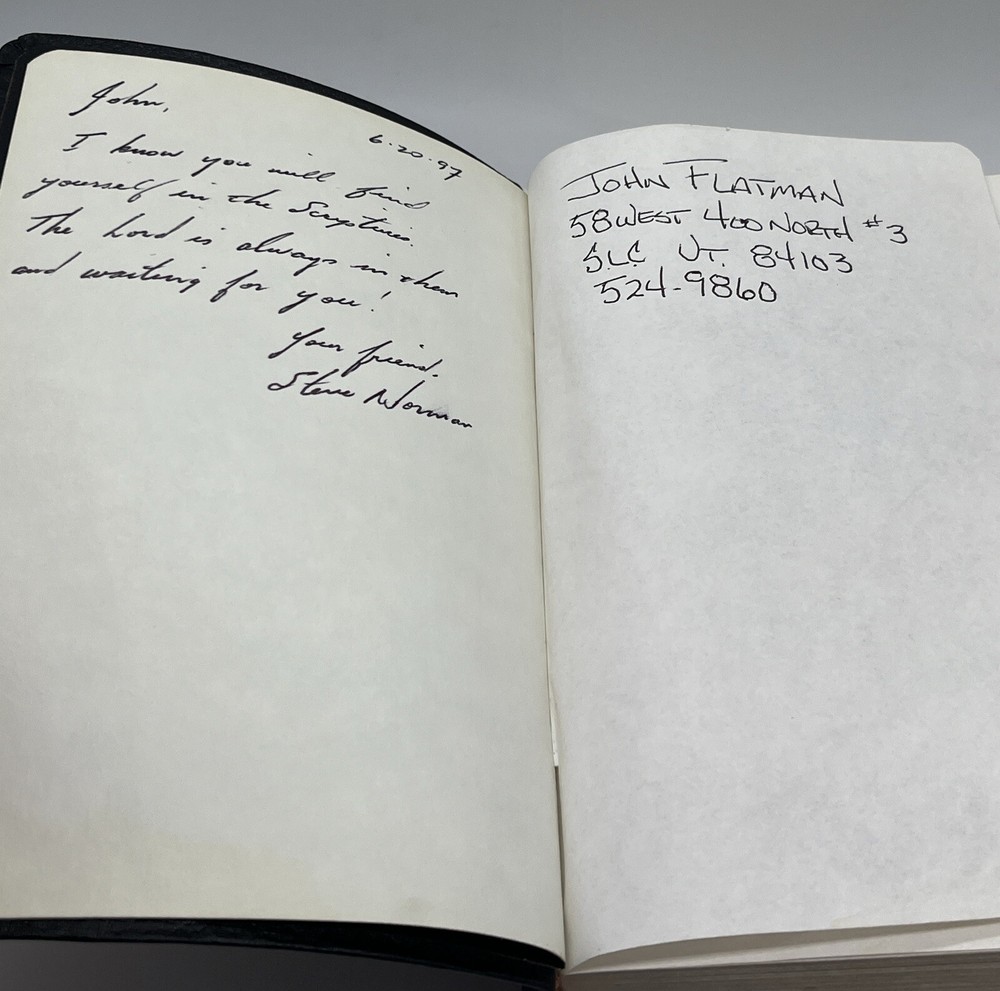 John,
6·20·97
I know you will find
yourself in the Scriptures.
The Lord is always in them
and waiting for you!
Your friend.
Steve Norman
JOHN FLATMAN
58 WEST 400 NORTH #3
S.L.C UT. 84103
524-9860